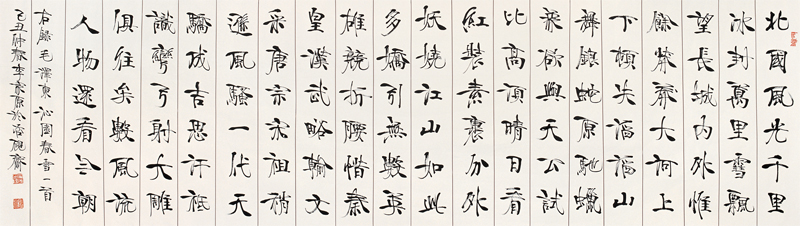 北國風光千里
冰封萬里雪飄
望長城內外惟
餘莽莽大河上
下頓失滔滔山
舞銀蛇原馳蠟
象欲與天公試
比高須晴日看
紅裝素裹分外
妖嬈江山如此
多嬌引無數英
雄競折腰惜秦
皇漢武略輸文
采唐宗宋祖稍
遜風騷一代天
驕成吉思汗祗
識彎弓射大雕
俱往矣數風流
人物還看今朝
右錄毛澤東沁園春雪一首
己丑仲春李原於硯齋